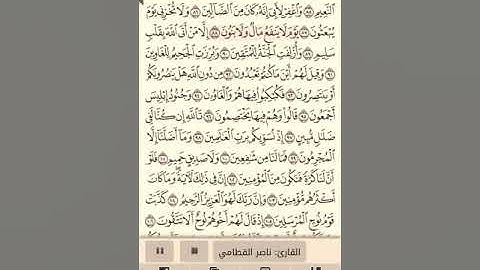 ٱلنَّعِيمِ ٨٥ وَٱغْفِرْ لِأَبِيٓ إِنَّهُۥ كَانَ مِنَ ٱلضَّآلِّينَ ٨٦ وَلَا تُخْزِنِي يَوْمَ
يُبْعَثُونَ ٨٧ يَوْمَ لَا يَنفَعُ مَالٌ وَلَا بَنُونَ ٨٨ إِلَّا مَنْ أَتَى ٱللَّهَ بِقَلْبٍ
سَلِيمٍ ٨٩ وَأُزْلِفَتِ ٱلْجَنَّةُ لِلْمُتَّقِينَ ٩٠ وَبُرِّزَتِ ٱلْجَحِيمُ لِلْغَاوِينَ
٩١ وَقِيلَ لَهُمْ أَيْنَ مَا كُنتُمْ تَعْبُدُونَ ٩٢ مِن دُونِ ٱللَّهِ هَلْ يَنصُرُونَكُمْ
أَوْ يَنتَصِرُونَ ٩٣ فَكُبْكِبُوا۟ فِيهَا هُمْ وَٱلْغَاوُۥنَ ٩٤ وَجُنُودُ إِبْلِيسَ
أَجْمَعُونَ ٩٥ قَالُوا۟ وَهُمْ فِيهَا يَخْتَصِمُونَ ٩٦ تَٱللَّهِ إِن كُنَّا لَفِي
ضَلَٰلٍ مُّبِينٍ ٩٧ إِذْ نُسَوِّيكُم بِرَبِّ ٱلْعَٰلَمِينَ ٩٨ وَمَآ أَضَلَّنَآ إِلَّا
ٱلْمُجْرِمُونَ ٩٩ فَمَا لَنَا مِن شَٰفِعِينَ ١٠٠ وَلَا صَدِيقٍ حَمِيمٍ ١٠١ فَلَوْ
أَنَّ لَنَا كَرَّةً فَنَكُونَ مِنَ ٱلْمُؤْمِنِينَ ١٠٢ إِنَّ فِي ذَٰلِكَ لَءَايَةً وَمَا كَانَ
أَكْثَرُهُم مُّؤْمِنِينَ ١٠٣ وَإِنَّ رَبَّكَ لَهُوَ ٱلْعَزِيزُ ٱلرَّحِيمُ ١٠٤ كَذَّبَتْ
قَوْمُ نُوحٍ ٱلْمُرْسَلِينَ ١٠٥ إِذْ قَالَ لَهُمْ أَخُوهُمْ نُوحٌ أَلَا تَتَّقُونَ ١٠٦
القارئ: ناصر القطامي